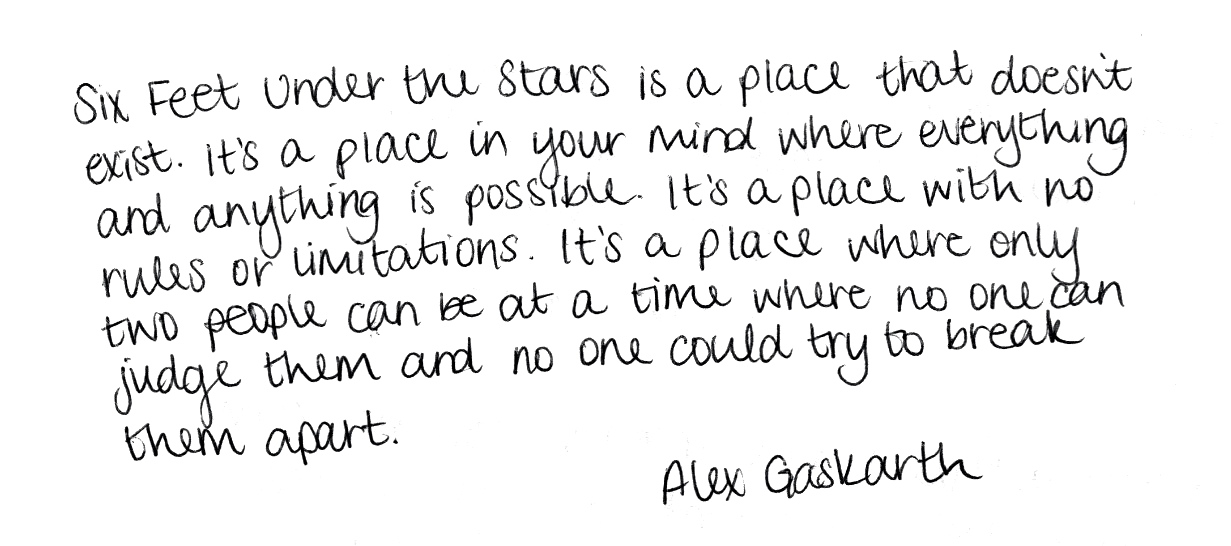 Six Feet Under the Stars is a place that doesn't
exist. It's a place in your mind where everything
and anything is possible. It's a place with no
rules or limitations. It's a place where only
two people can be at a time where no one can
judge them and no one could try to break
them apart.
Alex Gaskarth